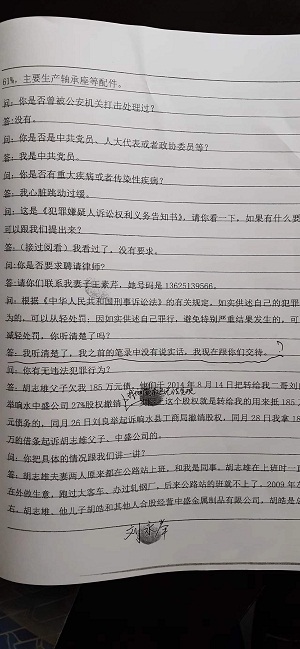 61%，主要生产轴承座等配件。
问：你是否曾被公安机关打击处理过？
答：没有。
问：你是否是中共党员、人大代表或者政协委员等？
答：我是中共党员。
问：你是否有重大疾病或者传染性疾病？
答：我心脏跳动过缓。
问：这是《犯罪嫌疑人诉讼权利义务告知书》，请你看一下，如果有什么要
可以跟我们提出来？
答：（接过阅看）我看过了，没有要求。
问：你是否要求聘请律师？
答：请你们联系我妻子王素芹，她号码是13625139566。
问：根据《中华人民共和国刑事诉讼法》的有关规定，如实供述自己的犯罪
为的，可以从轻处罚；因如实供述自己罪行，避免特别严重结果发生的，可
减轻处罚，你听清楚了吗？
答：我听清楚了，我之前的笔录中没有说实话，我现在跟你们交待。
问：你有无违法犯罪行为？
答：胡志雄父子欠我185万元债，他们于2014年8月14日把转给我二哥刘
举响水中盛公司27%股权撤销，这个股权就是转给我的用来抵185万
元债务的，同月26日刘良举起诉响水县工商局撤销股权，同月28日我拿18
万的借条起诉胡志雄父子、中盛公司的。
问：你把具体的情况跟我们讲一讲？
答：胡志雄夫妻两人原来都在公路站上班，和我是同事，胡志雄在上班时一直
在外做生意，跑过大客车、办过轧钢厂，后来公路站的班就不上了，2009年左
右，胡志雄、他儿子胡皓和其他人合股经营中盛金属制品有限公司，胡皓是总